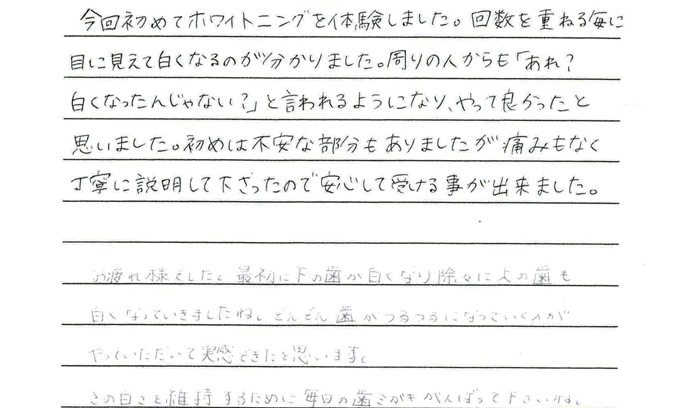 今回初めてホワイトニングを体験しました。回数を重ねる毎に
目に見えて白くなるのが分かりました。周りの人からも「あれ?
白くなったんじゃない?」と言われるようになり、やって良かったと
思いました。初めは不安な部分もありましたが痛みもなく
丁寧に説明して下さったので安心して受ける事が出来ました。
お疲れ様でした。最初に下の歯が白くなり除々に上の歯も
白くなっていきましたね。どんどん歯がつるつるになっていくのが
やっていただいて実感できたと思います。
この白さを維持するために毎日の歯みがきがんばって下さいね。